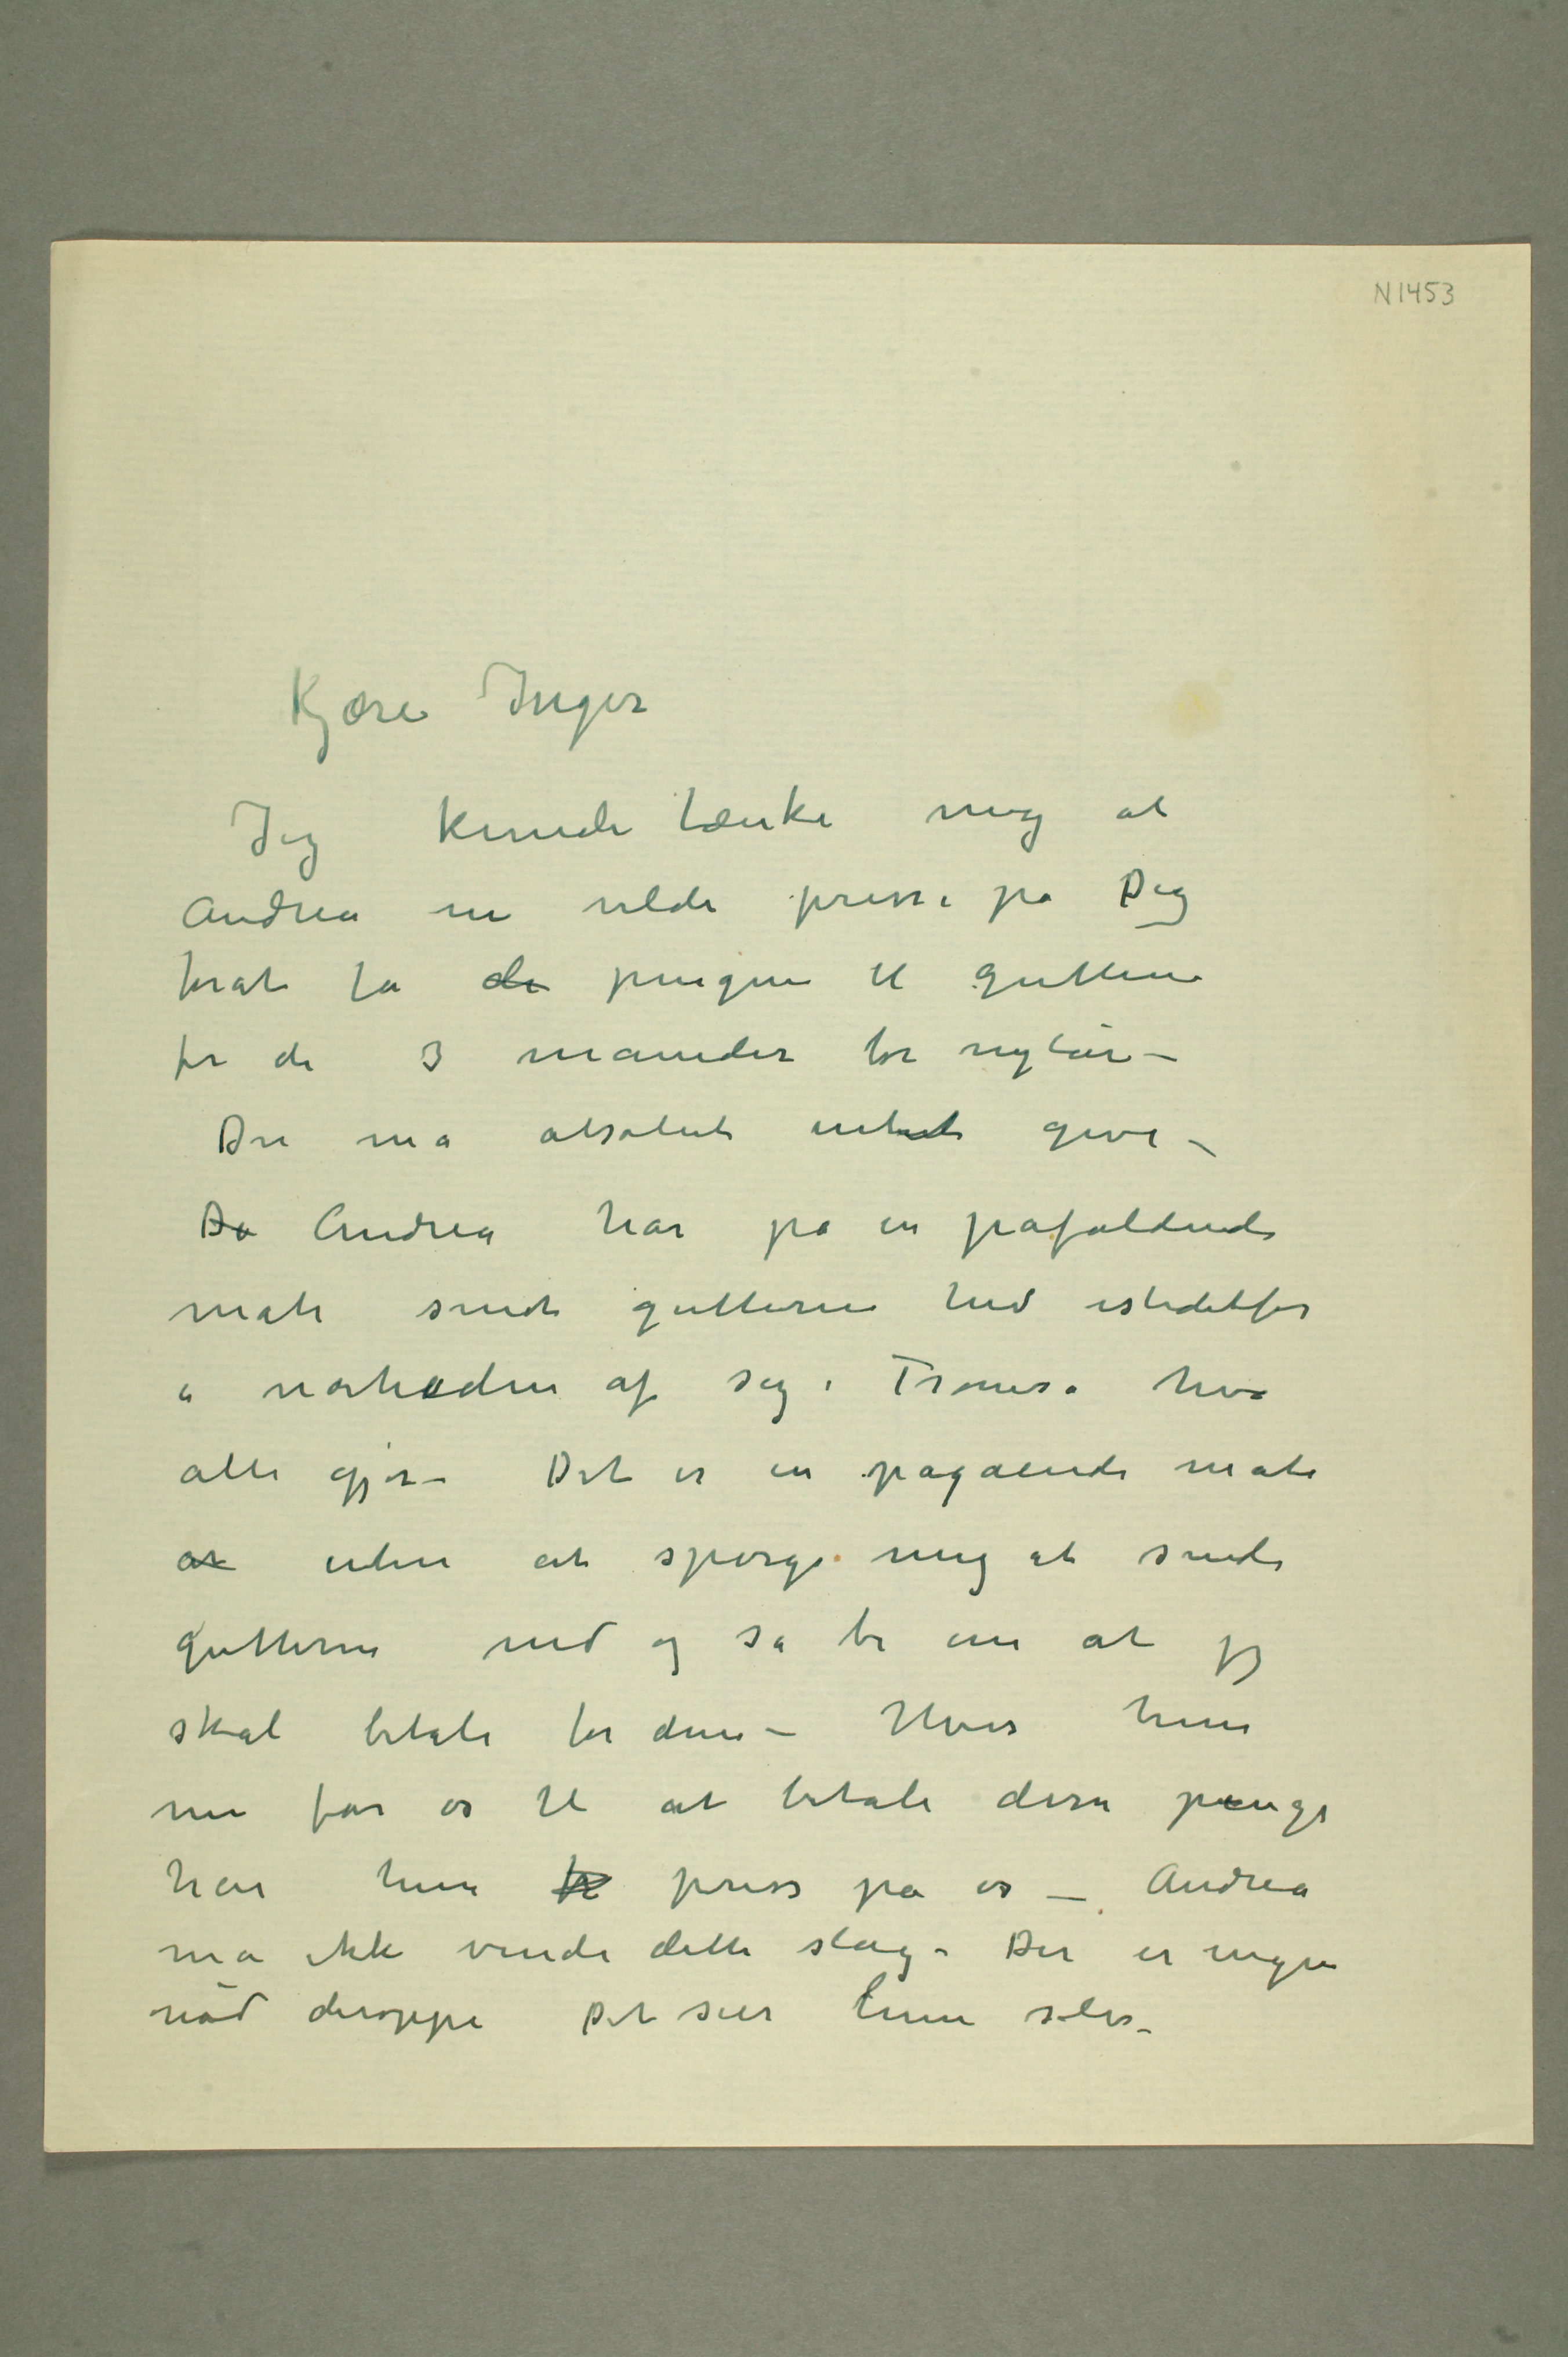 N1453
Kjære Inger
Jeg kunde tænke mig at
Andrea nu vilde presse på Dig
forat få de pengene til guttene
for de 3 maneder før nytår –
Du må absolut intet give –
Da Andrea har på en påfaldende
måte sendt gutterne hid istedetfor
i nærheden af seg i Tromsø hva
alle gjør – Det er en pågående måte
at uten at spørge mig at sende
gutterne ned og så be om at jeg
skal betale for dem – Hvis hun
nu får os til at betale disse penge
har hun press på os – Andrea
må ikke vinde dette slag – Der er ingen
nød deroppe Det sier hun selv –